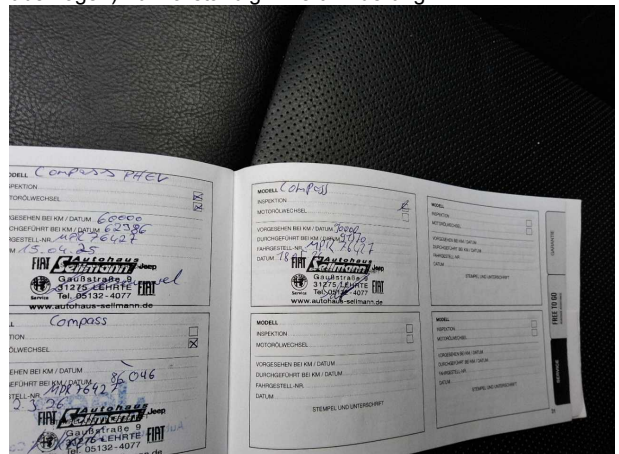 MODELL Compass PHEV
INSPEKTION
MOTORÖLWECHSEL
VORGESEHEN BEI KM / DATUM 60000
DURCHGEFÜHRT BEI KM / DATUM 62386
FAHRGESTELL-NR. MPR 76427
DATUM 15.04.25
FIAT Autohaus Sellmann Jeep
Gaußstraße 9
31275 LEHRTE FIAT
Service Tel. 05132-4077
www.autohaus-sellmann.de
Compass
MOTORÖLWECHSEL
VORGESEHEN BEI KM / DATUM
DURCHGEFÜHRT BEI KM / DATUM 86046
FAHRGESTELL-NR. MPR 76427
FIAT Autohaus Sellmann Jeep
Gaußstraße 9
31275 LEHRTE FIAT
Tel. 05132-4077
MODELL Compass
INSPEKTION
MOTORÖLWECHSEL
VORGESEHEN BEI KM / DATUM
DURCHGEFÜHRT BEI KM / DATUM
FAHRGESTELL-NR. MPR 76427
DATUM
FIAT Autohaus Sellmann Jeep
Gaußstraße 9
31275 LEHRTE FIAT
Service Tel. 05132-4077
www.autohaus-sellmann.de
MODELL
INSPEKTION
MOTORÖLWECHSEL
VORGESEHEN BEI KM / DATUM
DURCHGEFÜHRT BEI KM / DATUM
FAHRGESTELL-NR.
DATUM
STEMPEL UND UNTERSCHRIFT
MODELL
INSPEKTION
MOTORÖLWECHSEL
VORGESEHEN BEI KM / DATUM
DURCHGEFÜHRT BEI KM / DATUM
FAHRGESTELL-NR.
DATUM
STEMPEL UND UNTERSCHRIFT
MODELL
INSPEKTION
MOTORÖLWECHSEL
VORGESEHEN BEI KM / DATUM
DURCHGEFÜHRT BEI KM / DATUM
FAHRGESTELL-NR.
DATUM
STEMPEL UND UNTERSCHRIFT
GARANTIE
FREE TO GO
SERVICE